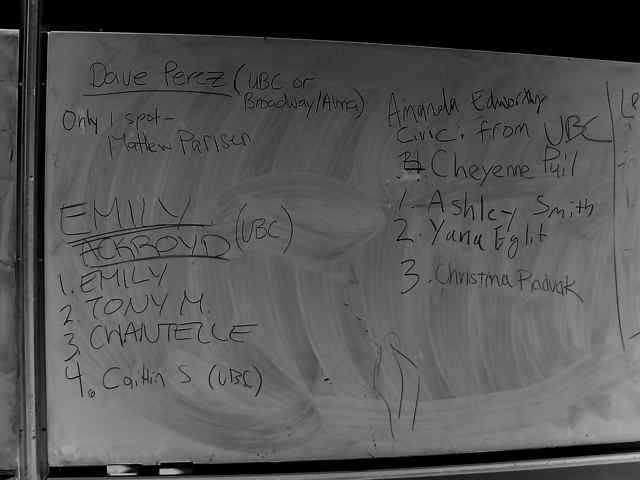 Dave Perez (UBC or
Broadway/Alma)
Only 1 spot -
Mattew Parisen
EMILY
ACKROYD (UBC)
1. EMILY
2. TONY M.
3. CHANTELLE
4. Caitlin S (UBC)
Amanda Edworthy
Civic. from UBC
Cheyenne Puil
1. Ashley Smith
2. Yana Eglit
3. Christina